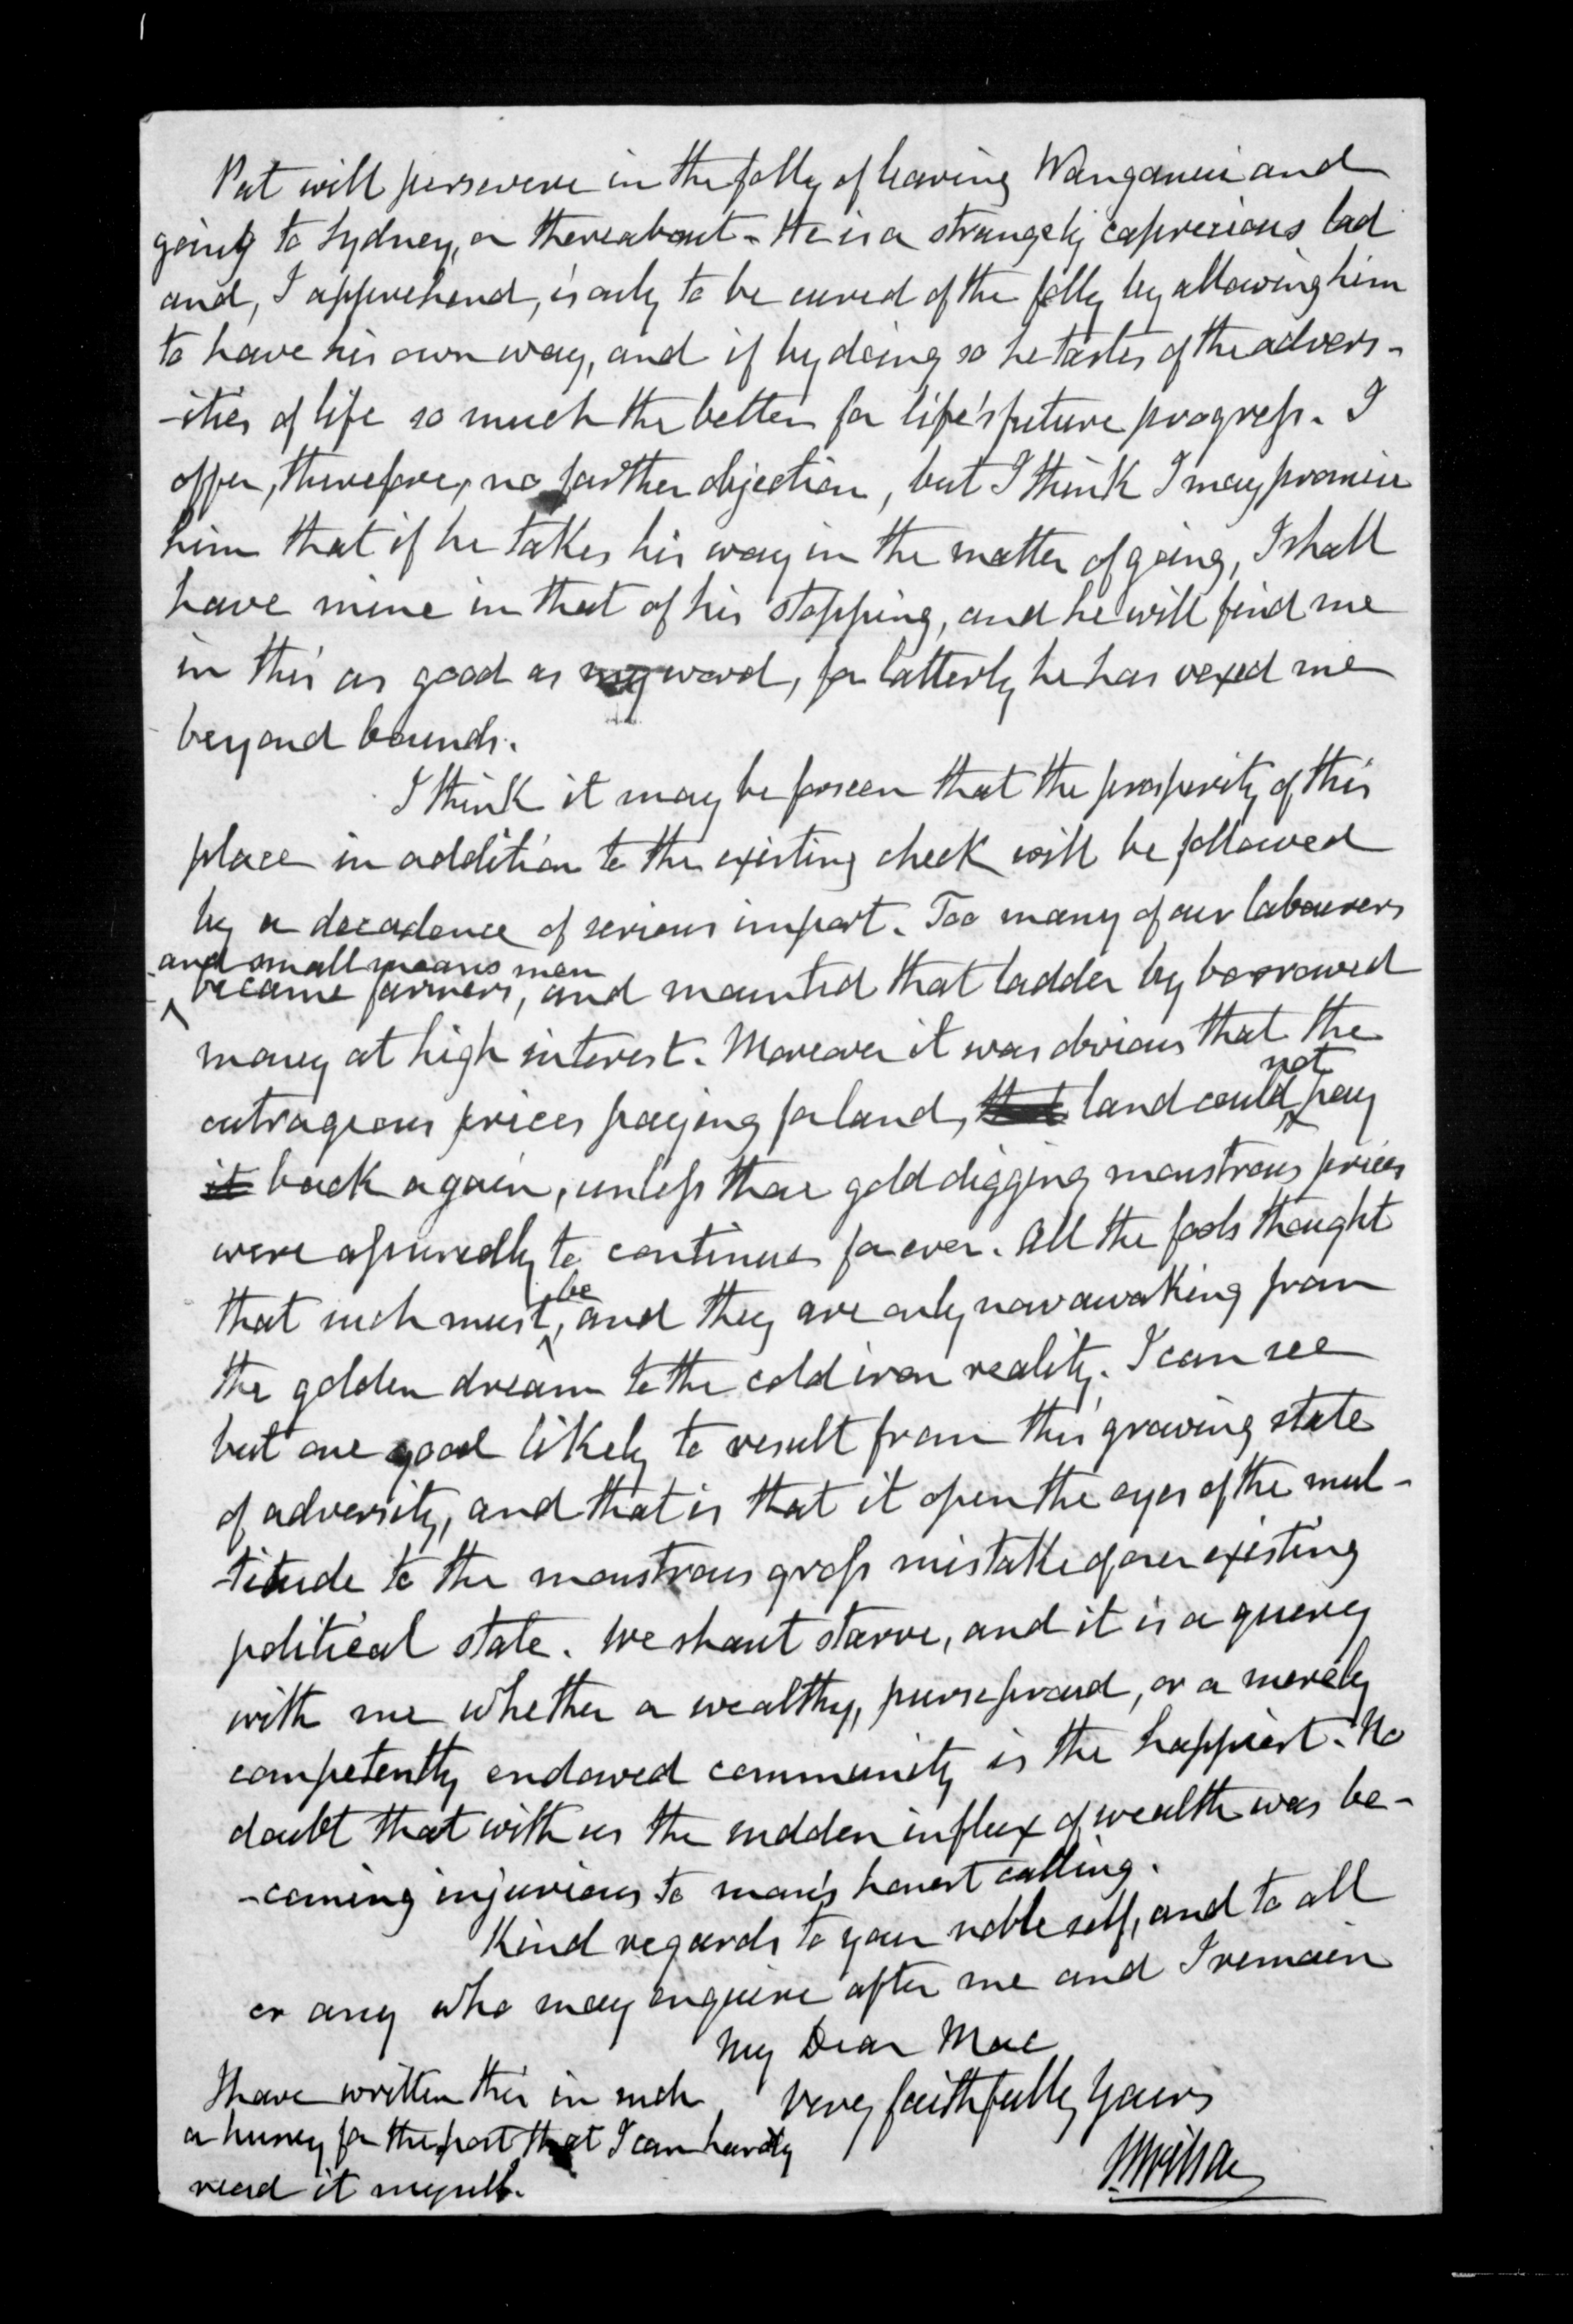 Pat will persevere in the folly of leaving Wanganui and
going to Sydney, or thereabout - He is a strangely capricious lad
and, I apprehend, is only to be cured of the folly by allowing him
to have his own way, and if by doing so he tastes of the advers-
-ities of life so much the better for life's future progress. I
offer, therefore, no farther objection, but I think I may promise
him that if he takes his way in the matter of going, I shall
have mine in that of his stopping, and he will find me
in this as good as my word, for latterly he has vexed me
beyond bounds.
I think it may be forseen that the prosperity of this
place in addition to the existing check will be followed
by a decadence of serious import. Too many of our labourers
and small means men
became farmers, and mounted that ladder by borrowed
money at high interest. Moreover it was obvious that the
outrageous prices paying for land, that land could not pay
it back again, unless those gold digging monstrous prices
were assuredly to continue for ever. All the fools thought
that such must be, and they are only now awaking from
the golden dream to the cold iron reality. I can see
but one good likely to result from this growing state
of adversity, and that is that it open the eyes of the mul-
-titude to the monstrous gross mistake of our existing
political state. We shant starve, and it is a query
with me whether a wealthy, purseproud, or a merely
competently endowed community is the happiest. No
doubt that with us the sudden influx of wealth was be-
-coming injurious to man's honest calling.
Kind regards to your noble self, and to all
or any who may enquire after me and I remain
My Dear Mac
Very faithfully Yours
I have written this in such
a hurry for the post that I can hardly
read it myself.